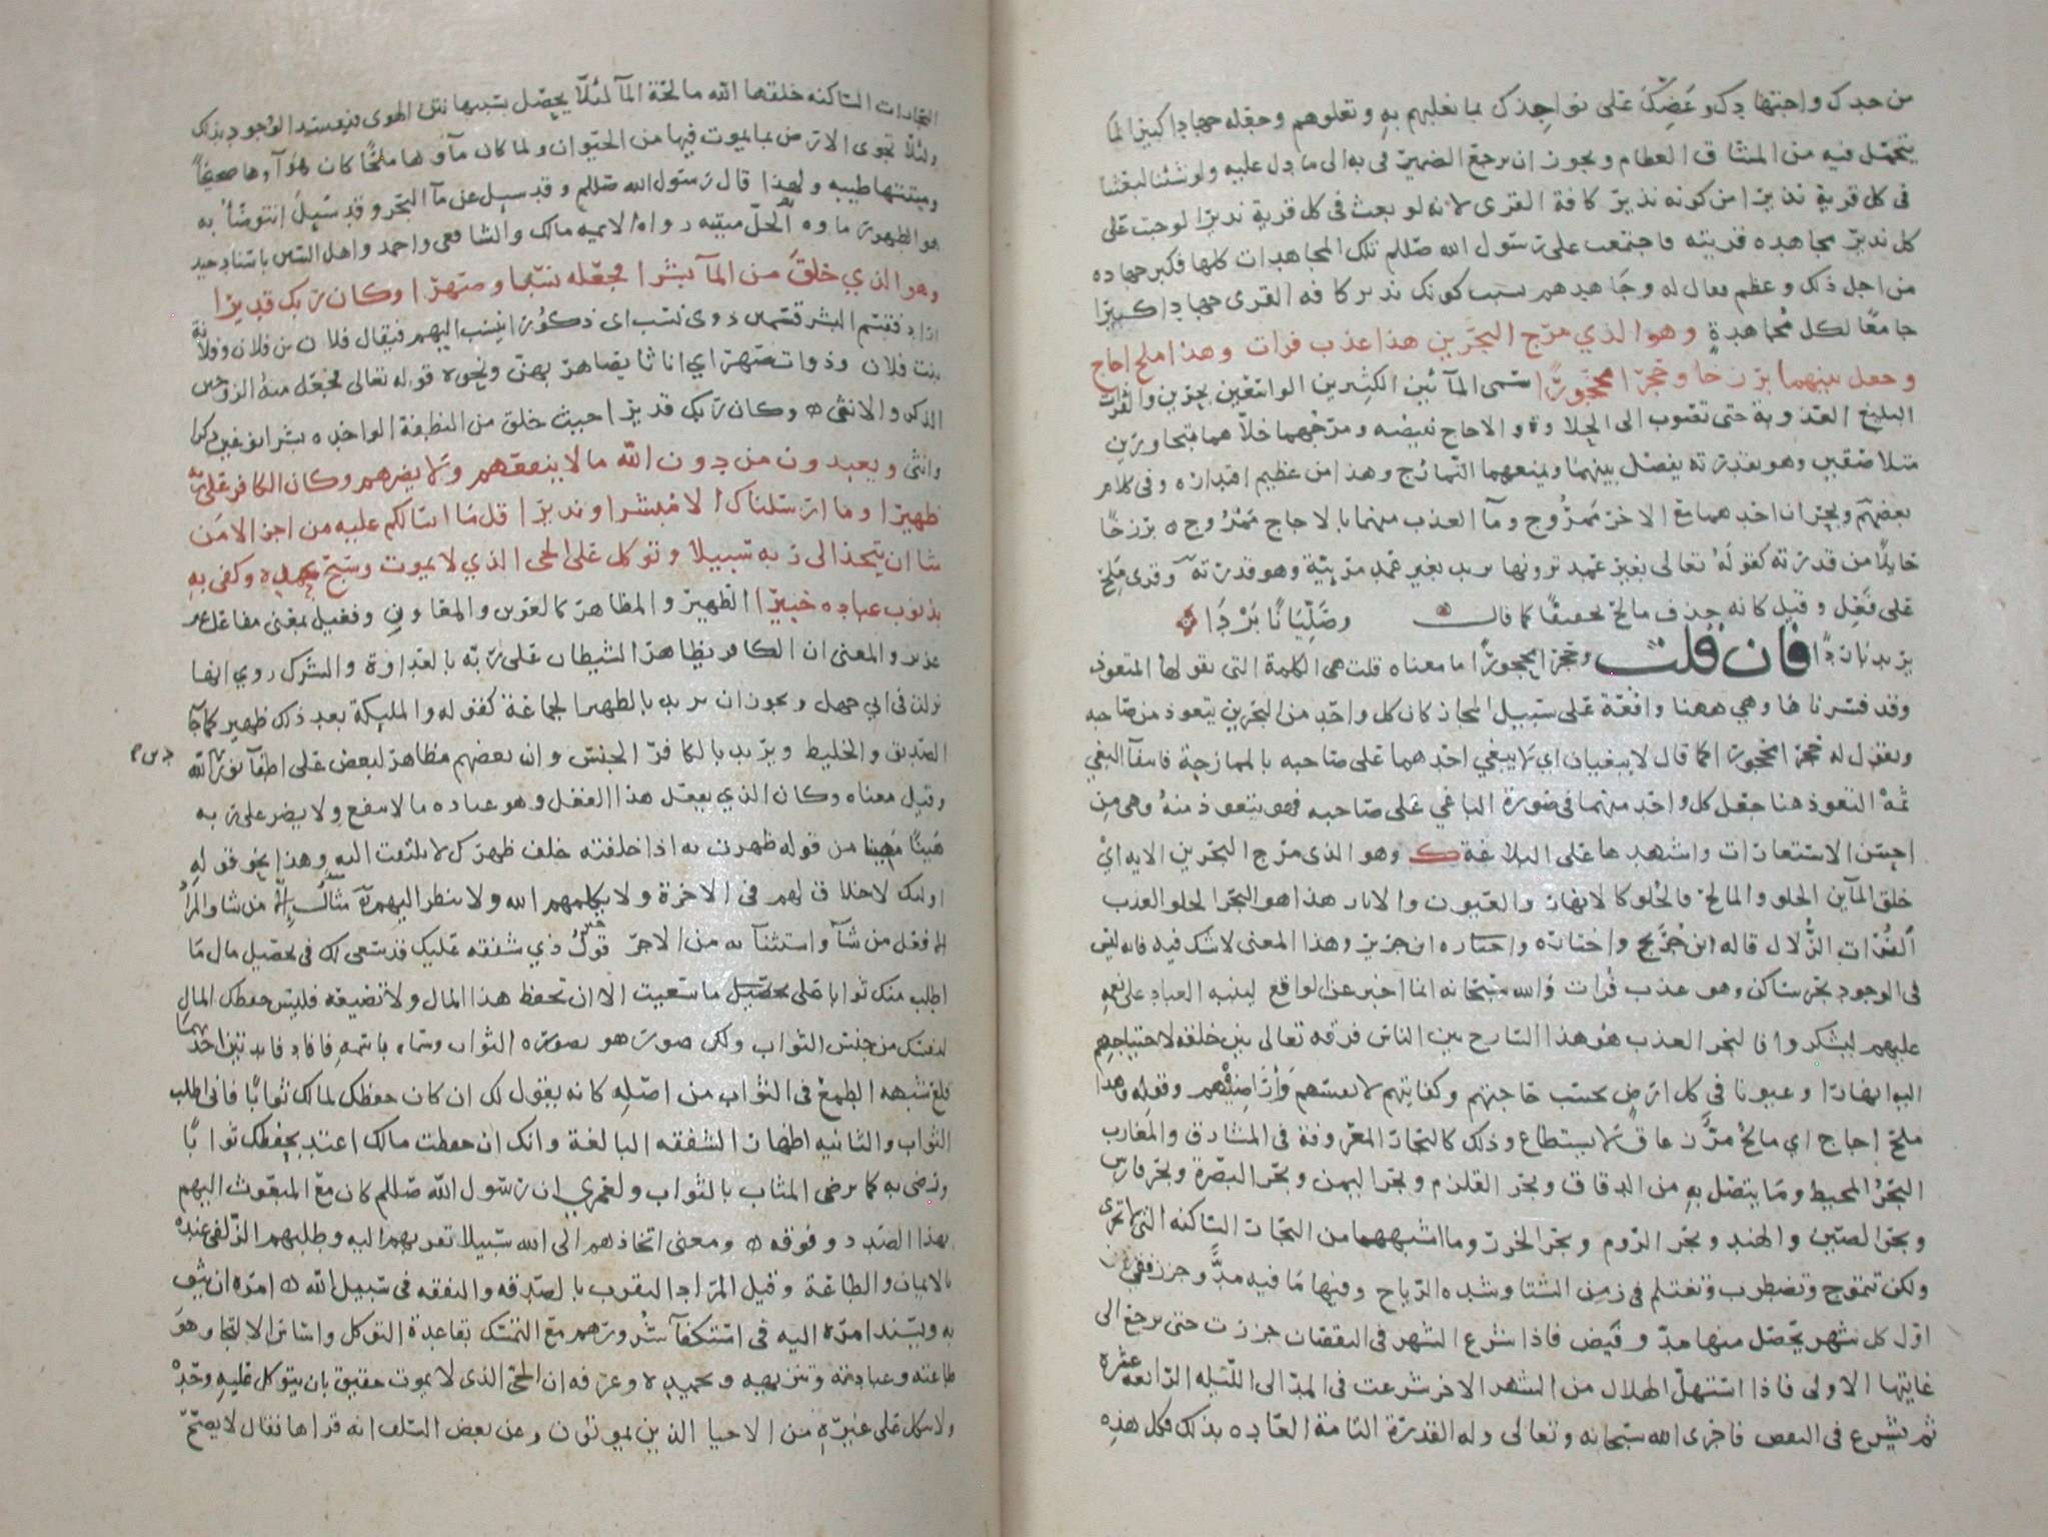 من جدك واجتهادك وعضك على نواجذك بما تغلبهم به وتعلوهم وجعله جهادا كبيرا لما
يتحمل فيه من المشاق العظام ويجوز ان يرجع الضمير في به الى ما دل عليه ولو شئنا لبعثنا
في كل قرية نذيرا من كونه نذير كافة القرى لانه لو بعث في كل قرية نذيرا لوجبت على
كل نذير مجاهده قريته فاجتمعت على رسول الله صللم تلك المجاهدات كلها فكبر جهاده
من اجل ذلك وعظم فقال له وجاهدهم بسبب كونك نذير كافه القرى جهادا كبيرا
جامعا لكل مجاهدة وهو الذي مرج البحرين هذا عذب فرات وهذا ملح اجاج
وجعل بينهما برزخا وحجرا محجورا سمى المآئين الكثيرين الواسعين بحرين والفرات
البليغ العذوبة حتى تضرب الى الحلاوة والاجاج نقيضه ومرجهما خلاهما متجاورين
متلاصقين وهو بقدرته يفصل بينهما ويمنعهما التمازج وهذا من عظيم اقتداره وفي كلام
بعضهم وبحران احدهما مع الاخر ممزوج ومآ العذب منهما بالاجاج ممزوج ٥ برزخا
حايلا من قدرته كقوله تعالى بغير عمد ترونها يريد بغير عمد مرئية وهو قدرته وقرى ملح
على فعل وقيل كانه حذف مالح تخفيفا كما قال وصليانا بردا
يريد باردا فان قلت وحجرا محجورا ما معناه قلت هي الكلمة التي يقولها المتعوذ
وقد فسرناها وهي ههنا واقعة على سبيل المجاز كان كل واحد من البحرين يتعوذ من صاحبه
ويقول له حجرا محجورا كما قال لا يبغيان اي لا يبغي احدهما على صاحبه بالممازجة فانتفآ البغي
ثمه التعوذ هنا جعل كل واحد منهما في صورة الباغي على صاحبه فهو يتعوذ منه وهي من
احسن الاستعارات واشهدها على البلاغة ك وهو الذى مرج البحرين الايه اي
خلق المآين الحلو والمالح فالحلو كالانهار والعيون والابار هذا هو البحر الحلو العذب
الفرات الزلال قاله ابن جريج واختاره ابن جرير وهذا المعنى لا شك فيه فانه ليس
في الوجود بحر ساكن وهو عذب فرات والله سبحانه انما اخبر عن الواقع لينبه العباد على نعمه
عليهم ليشكروا فالبحر العذب هو هذا السارح بين الناس فرقه تعالى بين خلقه لاحتياجهم
اليه انهارا وعيونا في كل ارض بحسب حاجتهم وكفايتهم لانفسهم واراضيهم وقوله وهذا
ملح اجاج اي مالح مر زعاق لا يستطاع وذلك كالبحار المعروفة في المشارق والمغارب
البحر المحيط وما يتصل به من الدقاق وبحر القلزم وبحر اليمن وبحر البصرة وبحر فارس
وبحر الصين والهند وبحر الروم وبحر الخزر وما اشبهها من البحار الساكنه التي لا تجرى
ولكن تتموج وتضطرب وتغتلم في زمن الشتا وشده الرياح وفيها ما فيه مد وجزر ففي
اول كل شهر يحصل منها مد وفيض فاذا شرع الشهر في النقصان جزرت حتى يرجع الى
غايتها الاولى فاذا استهل الهلال من الشهر الاخر شرعت في المد الى الليله الرابعة عشره
ثم يشرع في النقص فاجرى الله سبحانه وتعالى وله القدرة التامة العاده بذلك فكل هذه
البحارات الساكنه خلقها الله مالحة المآ لئلا يحصل بسببها نتن الهوى فيفسد الوجود بذلك
ولئلا تجوى الارض بما يموت فيها من الحيوان ولما كان مآوها ملحا كان هوآوها صحيحا
وميتتها طيبه ولهذا قال رسول الله صللم وقد سيل عن مآ البحر وقد سيل انتوضأ به
هو الطهور ماوه الحل ميتته رواه الايمه مالك والشافعى واحمد واهل السنن باسناد جيد
وهو الذي خلق من المآ بشرا فجعله نسبا وصهرا وكان ربك قديرا
اراد فقسم البشر قسمين ذوى نسب اى ذكورا ينسب اليهم فيقال فلان بن فلان وفلانة
بنت فلان وذوات صهر اي اناثا يصاهر بهن ونحوه قوله تعالى فجعل منه الزوجين
الذكر والانثى ٥ وكان ربك قديرا حيث خلق من النطفة الواحده بشرا نوعين ذكرا
وانثى ويعبدون من دون الله ما لا ينفعهم ولا يضرهم وكان الكافر على ربه
ظهيرا وما ارسلناك الا مبشرا ونذيرا قل ما اسالكم عليه من اجر الا من
شا ان يتخذ الى ربه سبيلا وتوكل على الحى الذي لا يموت وسبح بحمده وكفى به
بذنوب عباده خبيرا الظهير والمظاهر كالعوين والمعاون وفعيل بمعنى مفاعل غير
عزيز والمعنى ان الكافر يظاهر الشيطان على ربه بالعداوة والشرك روي انها
نزلت في ابي جهل ويجوز ان يريد بالظهير الجماعة كقوله والمليكة بعد ذلك ظهير كما جآ
الصديق والخليط ويريد بالكافر الجنس وان بعضهم مظاهر لبعض على اطفآ نور الله
وقيل معناه وكان الذي يفعل هذا الفعل وهو عباده ما لا ينفع ولا يضر على ربه
هينا مهينا من قوله ظهرت به اذا خلفته خلف ظهرك لا يلتفت اليه وهذا نحو قوله
اوليك لا خلاق لهم في الاخرة ولا يكلمهم الله ولا ينظر اليهم مثال الا من شا والمراد
الا فعل من شآ واستثنآ به من الاجر قول ذي شفقه عليك قد سعى لك في تحصيل مال ما
اطلب منك ثوابا على تحصيل ما سعيت الا ان تحفظ هذا المال ولا تضيعه فليس حفظك المال
لنفسك من جنس الثواب ولكن صوره هو بصوره الثواب وسماه باسمه فافاد فايدتين احدهما
قلع شبهه الطمع في الثواب من اصله كانه يقول لك ان كان حفظك لمالك ثوابا فاني اطلب
الثواب والثانيه اظهار الشفقه البالغة وانك ان حفظت مالك اعتد بحفظك ثوابا
ورضى به كما يرضى المثاب بالثواب ولعمري ان رسول الله صللم كان مع المبعوث اليهم
بهذا الصدد وفوقه ٥ ومعنى اتخاذهم الى الله سبيلا تقربهم اليه وطلبهم الزلفى عنده
بالايمان والطاعة وقيل المراد التقرب بالصدقه والنفقه في سبيل الله ٥ امره ان يثق
به ويسند امره اليه في استكفآ شرورهم مع التمسك بقاعدة التوكل واساس الالتجا وهو
طاعته وعبادته وتنزيهه وتحميده وعرفه ان الحي الذى لا يموت حقيق بان يتوكل عليه وحده
ولا يتكل على غيره من الاحيا الذين يموتون وعن بعض السلف انه قراها فقال لا يصح